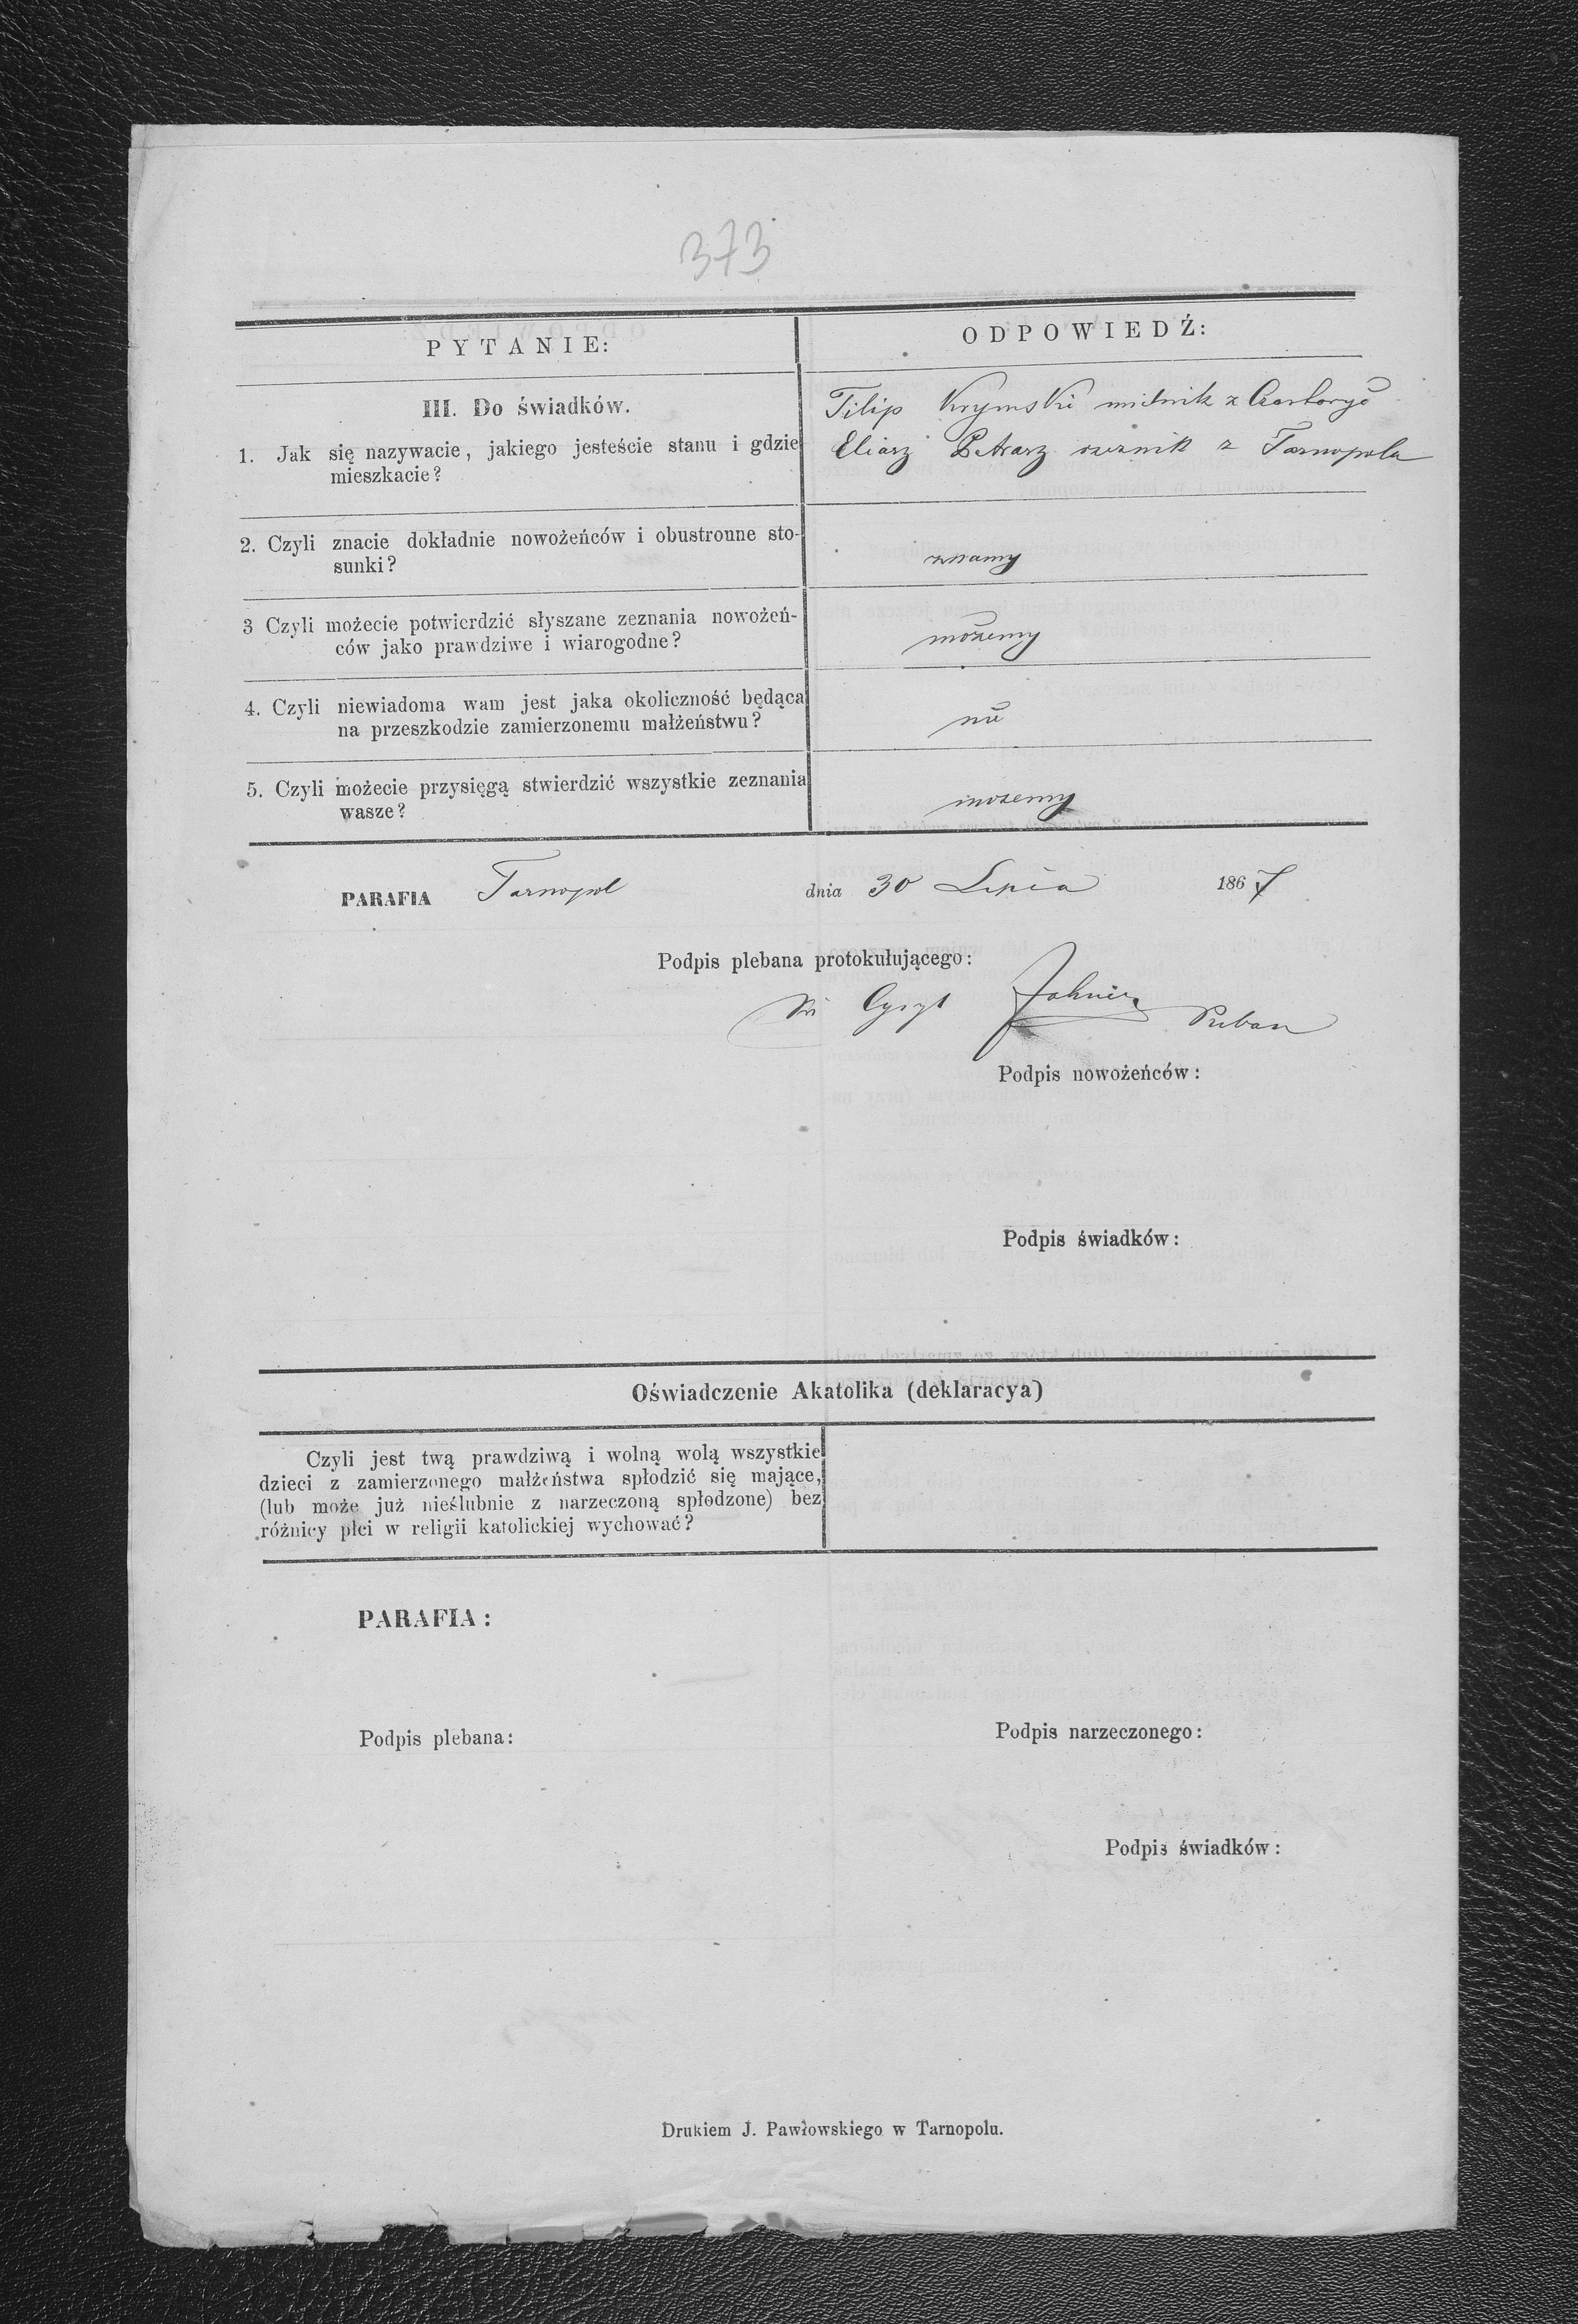 373
PYTANIE:
ODPOWIEDŹ:
III. Do świadków.
1. Jak się nazywacie, jakiego jesteście stanu i gdzie
mieszkacie?
Filip Krymski mielnik z
Eliasz z Tarnopola
2. Czyli znacie dokładnie nowożeńców i obustronne sto-
sunki?
znamy
3 Czyli możecie potwierdzić słyszane zeznania nowożeń-
ców jako prawdziwe i wiarogodne?
możemy
4. Czyli niewiadoma wam jest jaka okoliczność będąca
na przeszkodzie zamierzonemu małżeństwu?
nie
5. Czyli możecie przysięgą stwierdzić wszystkie zeznania
wasze?
możemy
PARAFIA Tarnopol dnia 30 Lipca 1867
Podpis plebana protokułującego:
Podpis nowożeńców:
Podpis świadków:
Oświadczenie Akatolika (deklaracya)
Czyli jest twą prawdziwą i wolną wolą wszystkie
dzieci z zamierzonego małżeństwa spłodzić się mające,
(lub może już nieślubnie z narzeczoną spłodzone) bez
różnicy płci w religii katolickiej wychować?
PARAFIA:
Podpis plebana:
Podpis narzeczonego:
Podpis świadków:
Drukiem J. Pawłowskiego w Tarnopolu.